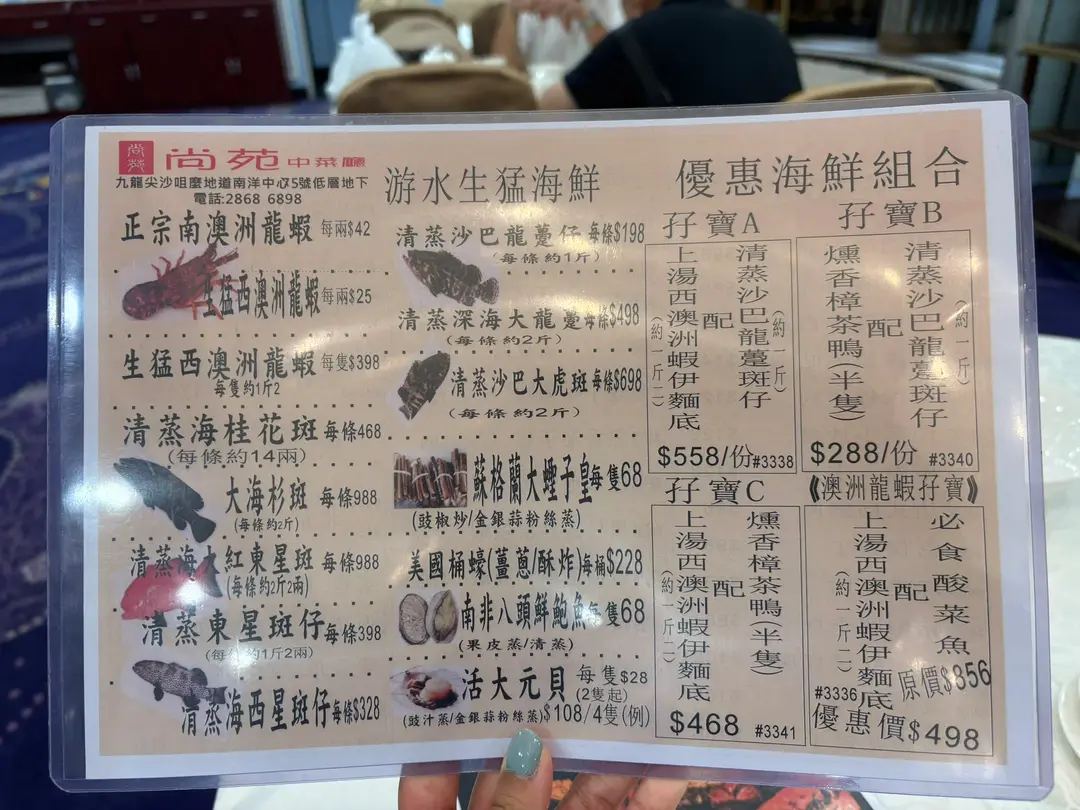 尚苑
尚苑中菜廳
九龍尖沙咀麼地道南洋中心5號低層地下
電話:2868 6898
游水生猛海鮮
正宗南澳洲龍蝦 每兩$42
生猛西澳洲龍蝦 每兩$25
生猛西澳洲龍蝦 每隻$398
每隻約1斤2
清蒸海桂花斑 每條468
(每條約14兩)
大海杉斑 每條988
(每條約2斤)
清蒸海大紅東星斑 每條988
(每條約2斤2兩)
清蒸東星斑仔 每條398
(每條約1斤2兩)
清蒸海西星斑仔 每條$328
清蒸沙巴龍躉仔 每條$198
(每條約1斤)
清蒸深海大龍躉 每條$498
(每條約2斤)
清蒸沙巴大虎斑 每條$698
(每條約2斤)
蘇格蘭大蟶子皇 每隻68
(豉椒炒/金銀蒜粉絲蒸)
美國桶蠔(薑蔥/酥炸) 每桶$228
南非八頭鮮鮑魚 每隻68
(果皮蒸/清蒸)
活大元貝 每隻$28
(2隻起)
(豉汁蒸/金銀蒜粉絲蒸) $108/4隻(例)
優惠海鮮組合
孖寶A
清蒸沙巴龍躉斑仔(約一斤)
配
上湯西澳洲蝦伊麵底(約一斤二)
$558/份 #3338
孖寶B
清蒸沙巴龍躉斑仔(約一斤)
配
燻香樟茶鴨(半隻)
$288/份 #3340
孖寶C
燻香樟茶鴨(半隻)
配
上湯西澳洲蝦伊麵底(約一斤二)
$468 #3341
《澳洲龍蝦孖寶》
必食酸菜魚
配
上湯西澳洲蝦伊麵底(約一斤二)
#3336 原價$856
優惠價$498